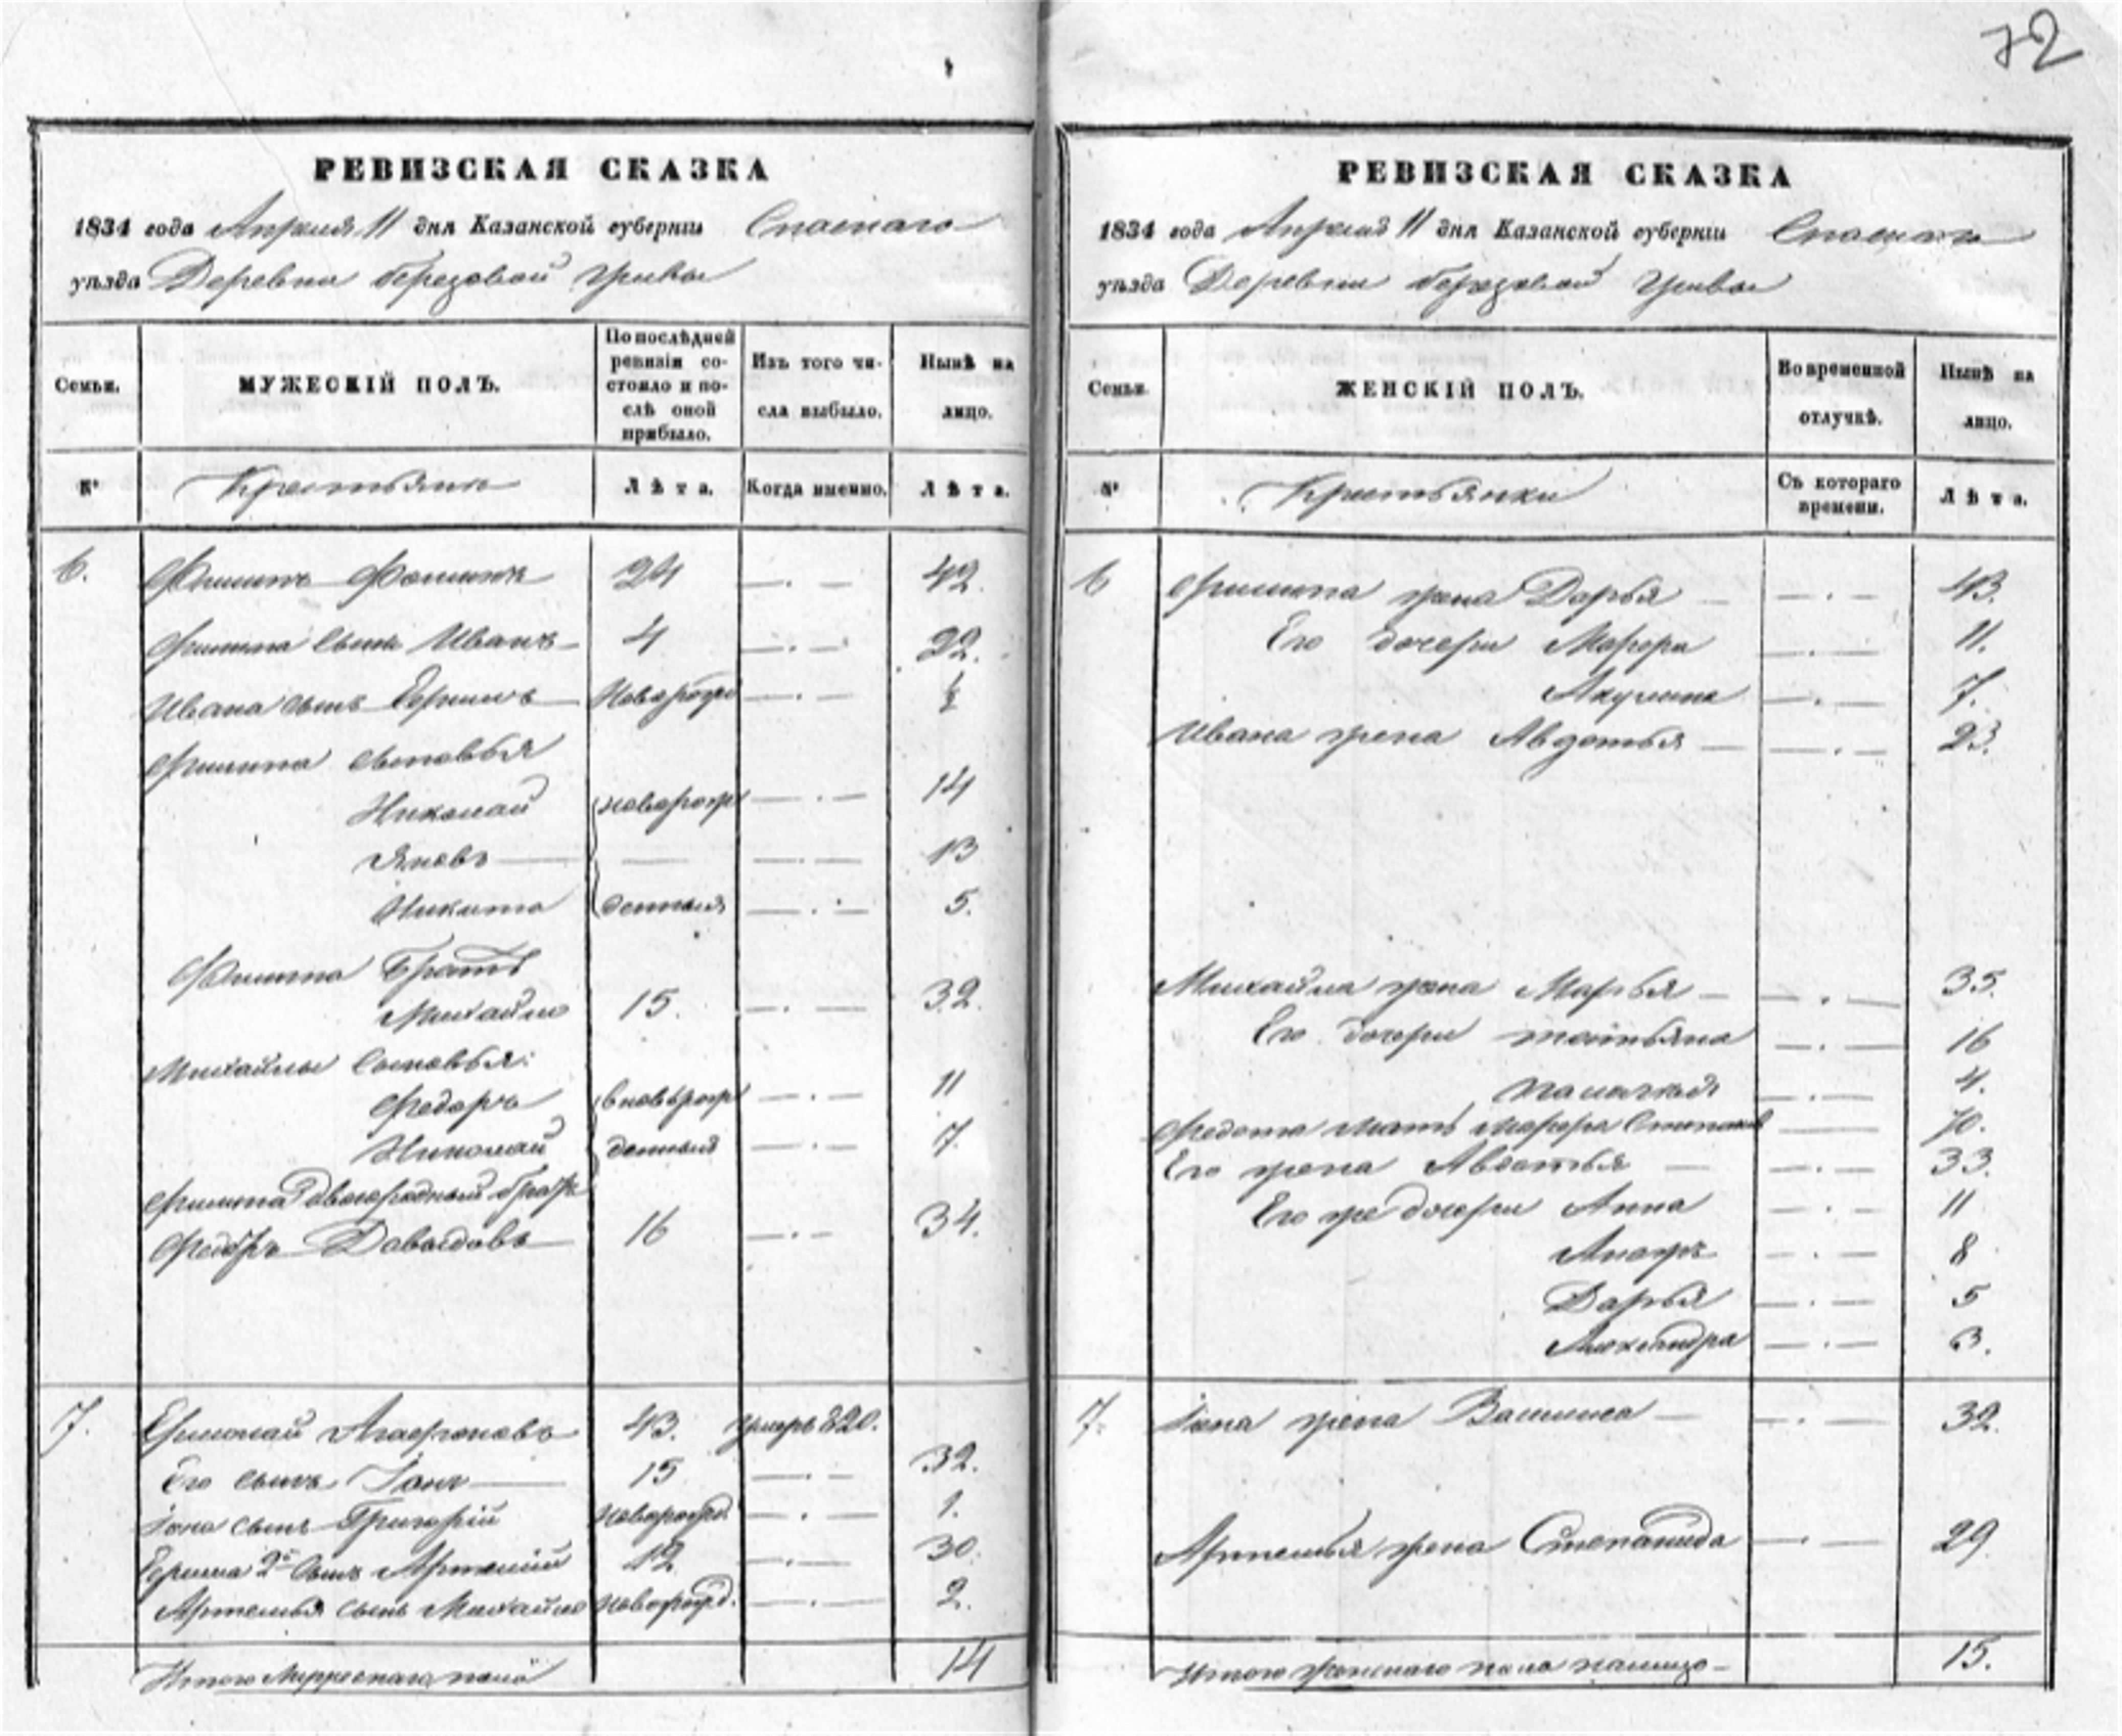 72
РЕВИЗСКАЯ СКАЗКА
1834 года Апреля 11 дня Казанской губерніи Спаскаго
уѣзда Деревни березовой гривы
Семьи. МУЖЕСКІЙ ПОЛЪ. По послѣдней ревизіи состояло и послѣ оной прибыло. Изъ того числа выбыло. Нынѣ на лицо.
№ Крестьяне Лѣта. Когда именно. Лѣта.
6. Филипъ Фоминъ 24 —.— 42.
Филипа сынъ Иванъ 4 —.— 22.
Ивана сынъ Новорож —.— ½
Филипа сыновья
Николай новорож —.— 14
Яковъ — —.— 13
Никита денныя —.— 5.
Филипа Братъ
Михайло 15. —.— 32.
Михайлы сыновья:
Федоръ вновьрож —.— 11
Николай денныя —.— 7.
Филипа двоюродный братъ
Давыдовъ 16 —.— 34.
7. Ермолай Агафоновъ 43. умеръ 820.
Его сынъ Іона 15 —.— 32.
Іона сынъ Григорій Новорожд. —.— 1.
2й сынъ Артемій 12 —.— 30.
Артемья сынъ Михайло новорожд. —.— 2.
Итого Мужескаго пола 14
РЕВИЗСКАЯ СКАЗКА
1834 года Апреля 11 дня Казанской губерніи Спаскаго
уѣзда Деревни березовой гривы
Семьи. ЖЕНСКІЙ ПОЛЪ. Во временной отлучкѣ. Нынѣ на лицо.
№ Крестьянки Съ котораго времени. Лѣта.
6 Филипа жена Дарья —.— 43.
Его дочери Марфа —.— 11.
Акулина —.— 7.
Ивана жена Авдотья —.— 23.
Михайла жена Марья —.— 35.
Его дочери татьяна —.— 16
пелагея —.— 4.
Федота мать Марфа Степанова — 70.
Его жена Авдотья —.— 33.
Его же дочери Анна —.— 11
—.— 8
Дарья —.— 5
Александра —.— 3.
7. Іона жена Васильиса 32.
Артемья жена Степанида —.— 29
Итого женскаго пола налицо 15.